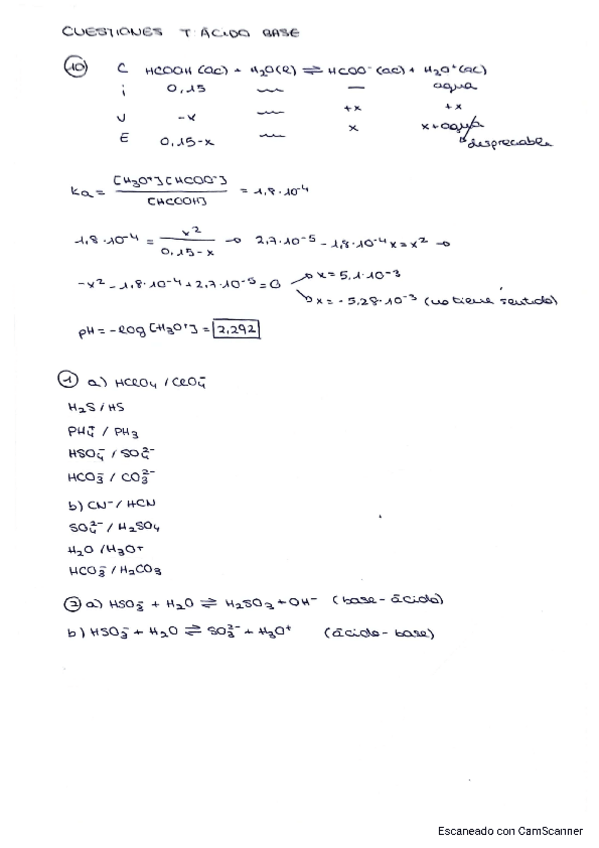 CUESTIONES T ÁCIDO BASE
10 C HCOOH (ac) + H₂O(l) ⇌ HCOO⁻ (ac) + H₃O⁺(ac)
i 0,15 ~~ — agua
~~ +x +x
V -x
E 0,15-x ~~ x x+agua
despreciable
Ka = [H₃O⁺][HCOO⁻] / [HCOOH] = 1,8·10⁻⁴
1,8·10⁻⁴ = x² / 0,15-x → 2,7·10⁻⁵ - 1,8·10⁻⁴x = x² →
-x² - 1,8·10⁻⁴ + 2,7·10⁻⁵ = 0 → x = 5,1·10⁻³
→ x = -5,28·10⁻³ (no tiene sentido)
pH = -log [H₃O⁺] = 2,292
1 a) HClO₄ / ClO₄⁻
H₂S / HS
PH₄⁺ / PH₃
HSO₄⁻ / SO₄²⁻
HCO₃⁻ / CO₃²⁻
b) CN⁻ / HCN
SO₄²⁻ / H₂SO₄
H₂O / H₃O⁺
HCO₃⁻ / H₂CO₃
a) HSO₃⁻ + H₂O ⇌ H₂SO₃ + OH⁻ (base - ácido)
b) HSO₃⁻ + H₂O ⇌ SO₃²⁻ + H₃O⁺ (ácido - base)
Escaneado con CamScanner